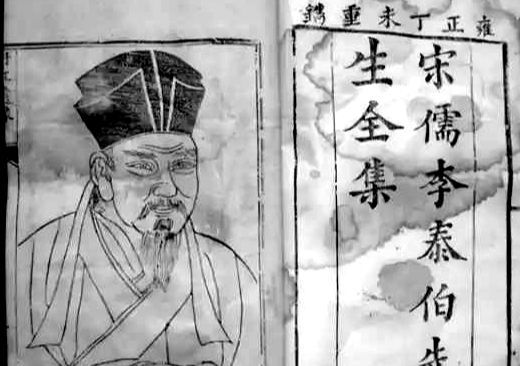 雍正丁未重鐫
宋儒李泰伯先
生全集